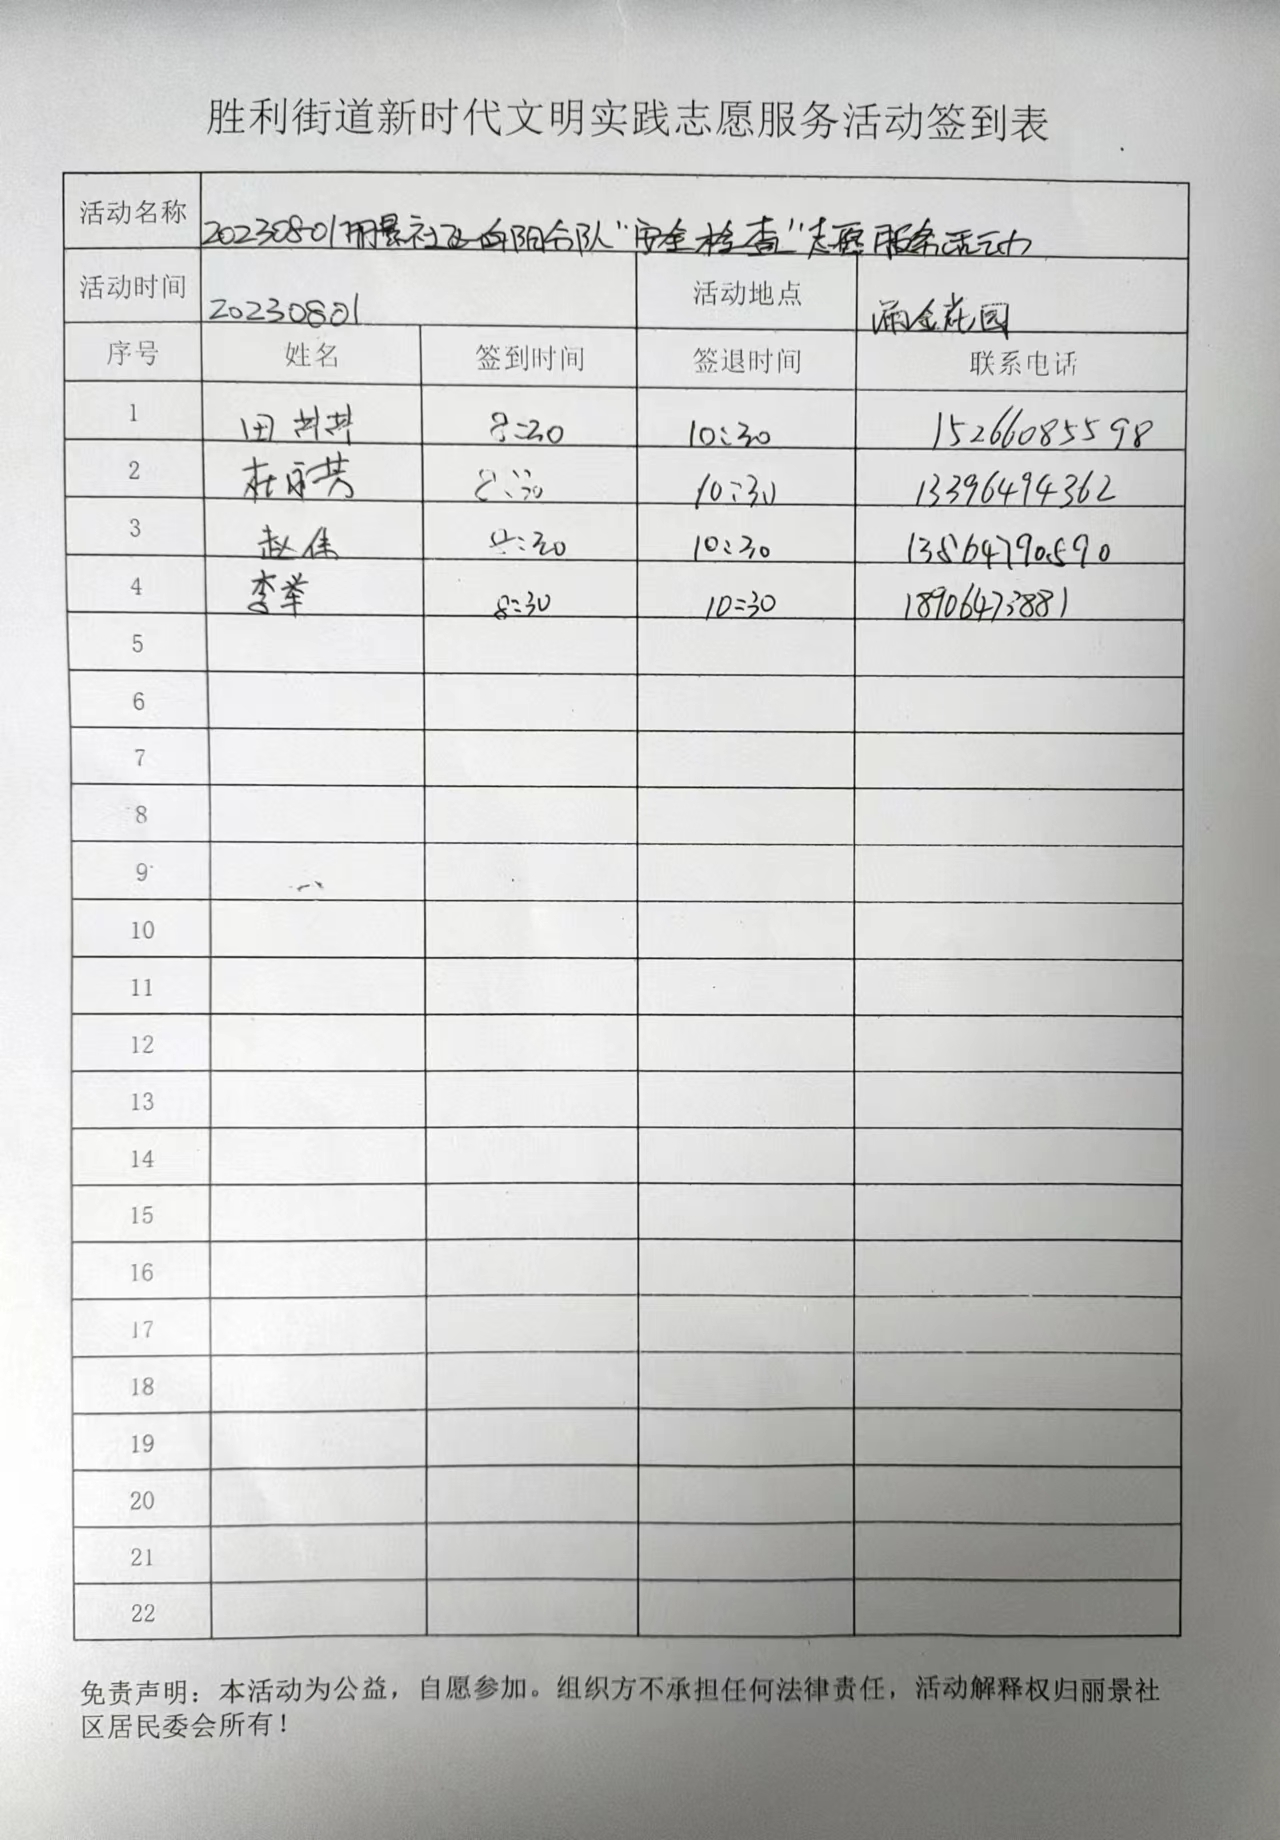 胜利街道新时代文明实践志愿服务活动签到表
活动名称 20230801丽景社区向阳分队“安全检查”志愿服务活动
活动时间 20230801 活动地点 涌金花园
序号 姓名 签到时间 签退时间 联系电话
1 田井井 8:30 10:30 15266085598
2 杜永芳 8:30 10:30 13396494362
3 赵佳 8:30 10:30 13864790590
4 李举 8:30 10:30 18906473881
5
6
7
8
9
10
11
12
13
14
15
16
17
18
19
20
21
22
免责声明：本活动为公益，自愿参加。组织方不承担任何法律责任，活动解释权归丽景社
区居民委会所有！